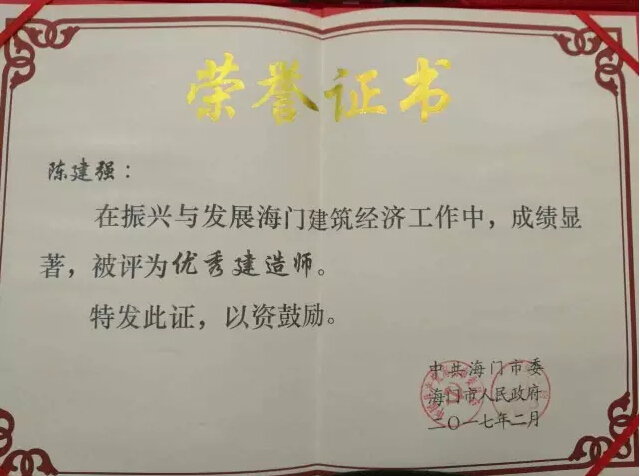 荣誉证书
陈建强：
在振兴与发展海门建筑经济工作中，成绩显
著，被评为优秀建造师。
特发此证，以资鼓励。
中共海门市委
海门市人民政府
二〇一七年二月